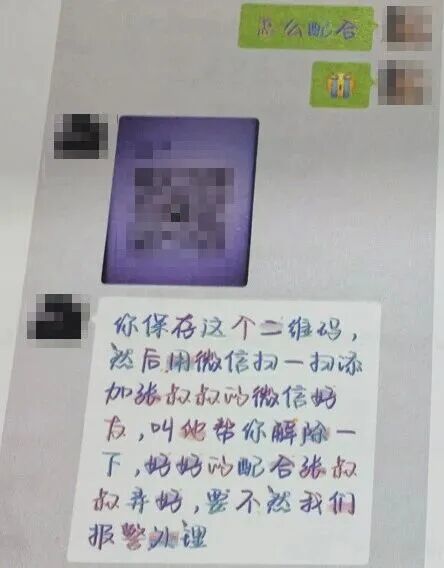 怎么配合
你保存这个二维码，
然后用微信扫一扫添
加张叔叔的微信好
友，叫他帮你解除一
下，好好的配合张叔
叔弄好，要不然我们
报警处理